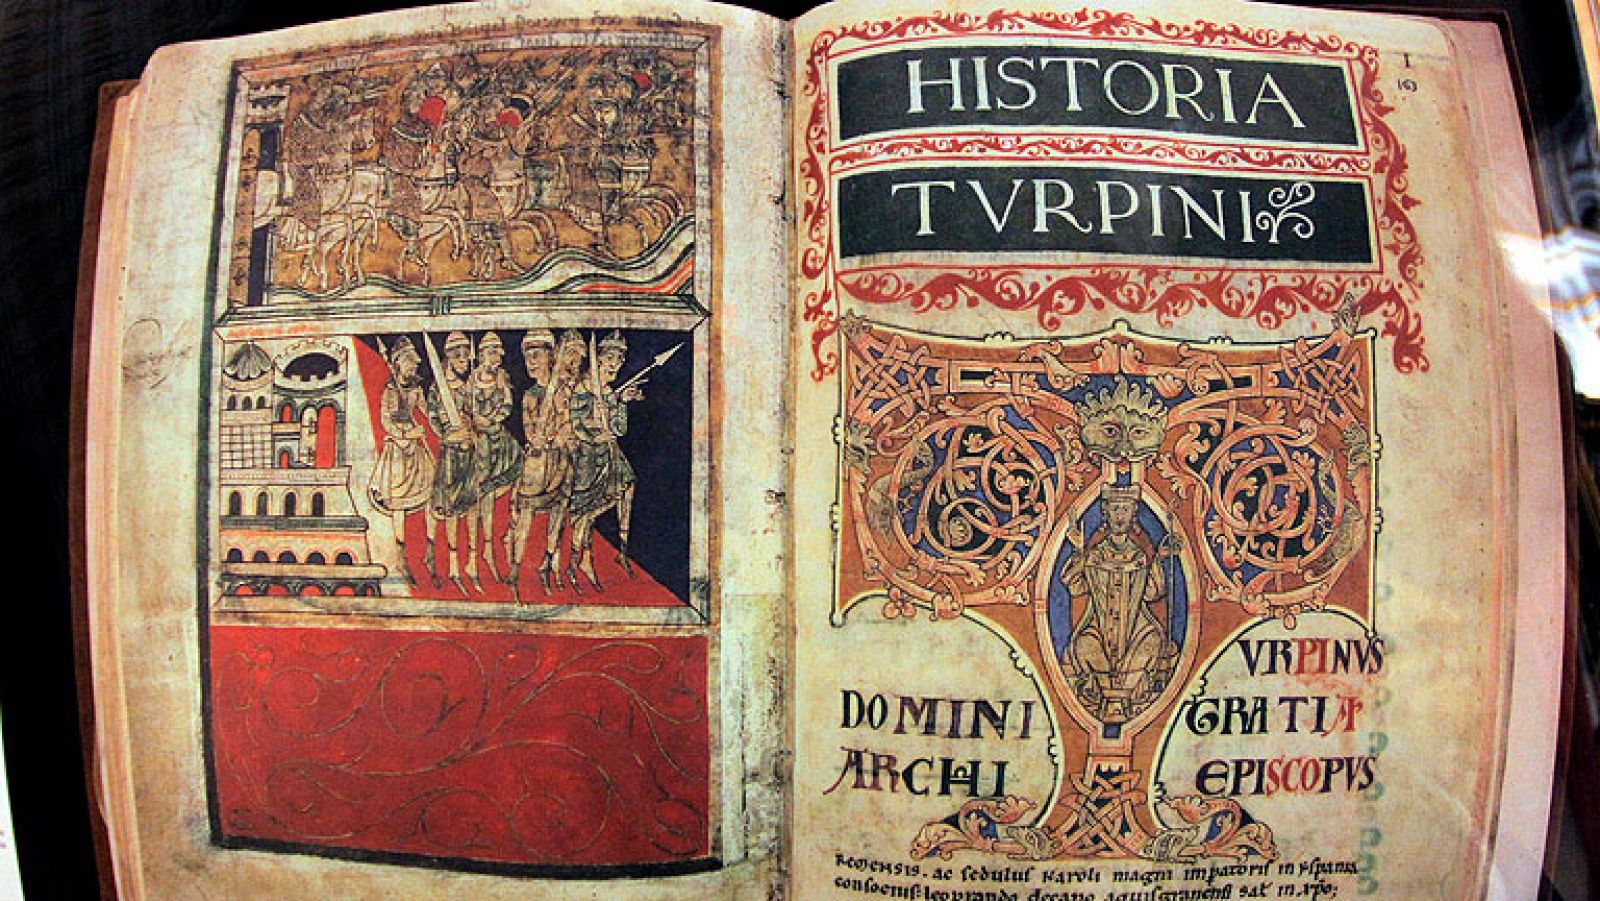 HISTORIA
TVRPINI
I
163
T
VRPINVS
DOMINI GRATIA
ARCHI EPISCOPVS
Remensis. ac sedulus Karoli magni imperatoris in yspania
consocius: leoprando decano aquisgranensi sal in xpo;